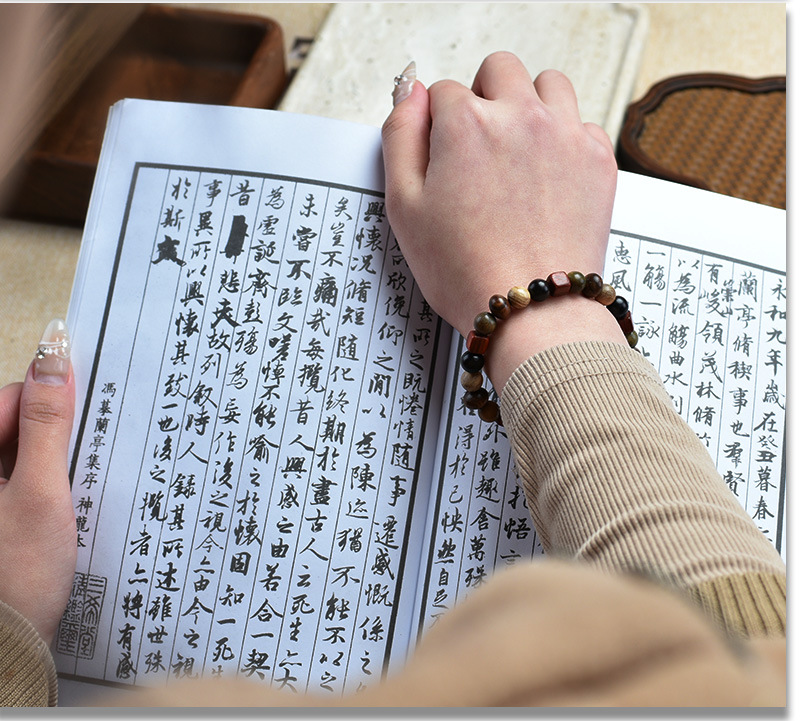 永和九年歲在癸丑暮春
蘭亭脩稧事也羣賢
崇山
有峻領茂林脩
以為流觴曲水列
一觴一詠
惠風
悟言
雖趣舍萬殊
得於己怏然自足
其所之既惓情隨事遷感慨係之
欣俛仰之閒以為陳迹猶不能不以之
興懷況脩短隨化終期於盡古人云死生亦大
矣豈不痛哉每攬昔人興感之由若合一契
未嘗不臨文嗟悼不能喻之於懷固知一死生
為虛誕齊彭殤為妄作後之視今亦由今之視
昔悲夫故列敘時人錄其所述雖世殊
事異所以興懷其致一也後之攬者亦將有感
於斯文
馮摹蘭亭集序 神龍本
三希堂
精鑑璽